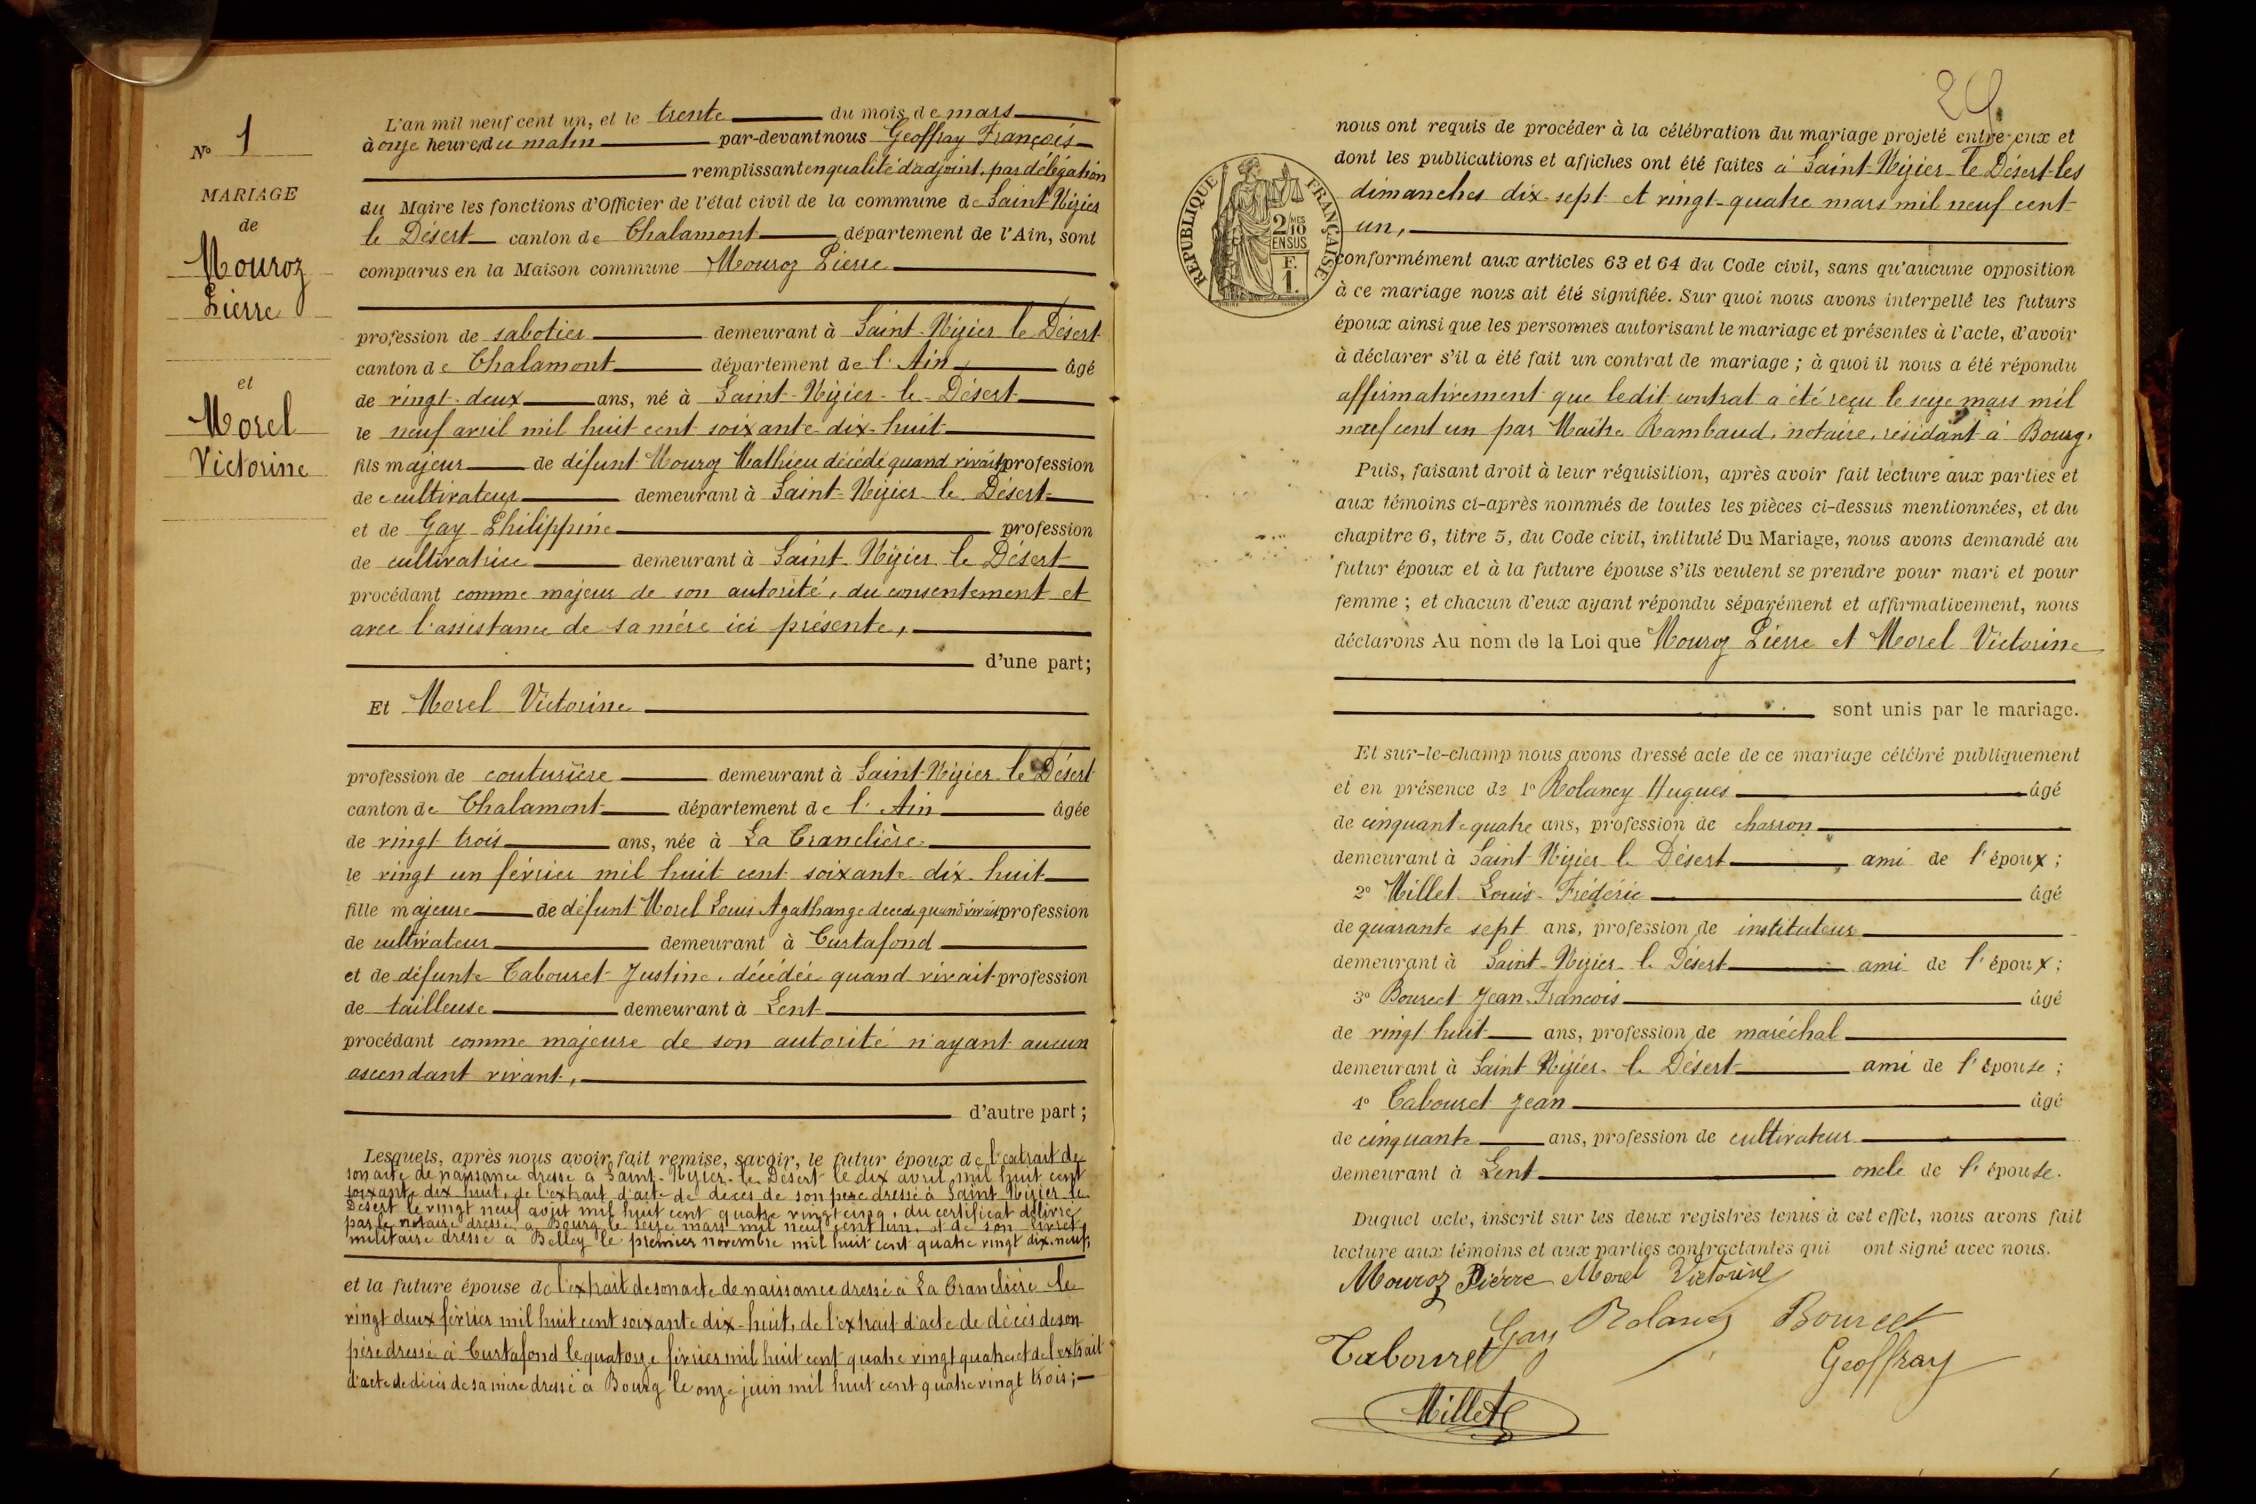 N° 1
MARIAGE
de
Mouroz
Pierre
et
Morel
Victorine
L'an mil neuf cent un, et le trente du mois de mars
à onze heures du matin par-devant nous Geoffray François
remplissant en qualité d'adjoint, par délégation
du Maire les fonctions d'Officier de l'état civil de la commune de Saint-Nizier
le Désert canton de Chalamont département de l'Ain, sont
comparus en la Maison commune Mouroz Pierre
profession de sabotier demeurant à Saint-Nizier le Désert
canton de Chalamont département de l'Ain âgé
de vingt-deux ans, né à Saint-Nizier-le-Désert
le neuf avril mil huit cent soixante-dix-huit
fils majeur de défunt Mouroz Mathieu décédé quand vivait profession
de cultivateur demeurant à Saint-Nizier-le Désert
et de Gay Philippine profession
de cultivatrice demeurant à Saint-Nizier le Désert
procédant comme majeur de son autorité, du consentement et
avec l'assistance de sa mère ici présente,
d'une part;
Et Morel Victorine
profession de couturière demeurant à Saint-Nizier le Désert
canton de Chalamont département de l'Ain âgée
de vingt trois ans, née à La Tranclière
le vingt un février mil huit cent soixante-dix-huit
fille majeure de défunt Morel Louis Agathange décédé quand vivait profession
de cultivateur demeurant à Curtafond
et de défunte Tabouret Justine, décédée quand vivait profession
de tailleuse demeurant à Lent
procédant comme majeure de son autorité n'ayant aucun
ascendant vivant,
d'autre part;
Lesquels, après nous avoir fait remise, savoir, le futur époux de l'extrait de
son acte de naissance dressé à Saint-Nizier-le Désert le dix avril mil huit cent
soixante dix huit, de l'extrait d'acte de décès de son père dressé à Saint Nizier le
Désert le vingt neuf août mil huit cent quatre vingt cinq, du certificat délivré
par le notaire dressé à Bourg le seize mars mil neuf cent un, et de son livret
militaire dressé à Belley le premier novembre mil huit cent quatre vingt dix-neuf;
et la future épouse de l'extrait de son acte de naissance dressé à La Tranclière le
vingt deux février mil huit cent soixante dix-huit, de l'extrait d'acte de décès de son
père dressé à Curtafond le quatorze février mil huit cent quatre vingt quatre et de l'extrait
d'acte de décès de sa mère dressé à Bourg le onze juin mil huit cent quatre vingt trois;
29
RÉPUBLIQUE FRANÇAISE
2/10 MES
EN SUS
F.
1.
nous ont requis de procéder à la célébration du mariage projeté entre eux et
dont les publications et affiches ont été faites à Saint-Nizier-le Désert les
dimanches dix-sept et vingt-quatre mars mil neuf cent
un,
conformément aux articles 63 et 64 du Code civil, sans qu'aucune opposition
à ce mariage nous ait été signifiée. Sur quoi nous avons interpellé les futurs
époux ainsi que les personnes autorisant le mariage et présentes à l'acte, d'avoir
à déclarer s'il a été fait un contrat de mariage; à quoi il nous a été répondu
affirmativement que ledit contrat a été reçu le seize mars mil
neuf cent un par Maître Rambaud, notaire, résidant à Bourg.
Puis, faisant droit à leur réquisition, après avoir fait lecture aux parties et
aux témoins ci-après nommés de toutes les pièces ci-dessus mentionnées, et du
chapitre 6, titre 5, du Code civil, intitulé Du Mariage, nous avons demandé au
futur époux et à la future épouse s'ils veulent se prendre pour mari et pour
femme; et chacun d'eux ayant répondu séparément et affirmativement, nous
déclarons Au nom de la Loi que Mouroz Pierre et Morel Victorine
sont unis par le mariage.
Et sur-le-champ nous avons dressé acte de ce mariage célébré publiquement
et en présence de 1° Rolancy Hugues âgé
de cinquante-quatre ans, profession de charron
demeurant à Saint-Nizier le Désert ami de l'époux;
2° Millet Louis-Frédéric âgé
de quarante sept ans, profession de instituteur
demeurant à Saint-Nizier-le Désert ami de l'époux;
3° Bourcet Jean-François âgé
de vingt huit ans, profession de maréchal
demeurant à Saint Nizier-le Désert ami de l'épouse;
4° Tabouret Jean âgé
de cinquante ans, profession de cultivateur
demeurant à Lent oncle de l'épouse.
Duquel acte, inscrit sur les deux registres tenus à cet effet, nous avons fait
lecture aux témoins et aux parties contractantes qui ont signé avec nous.
Mouroz Pièrre Morel Victorine
Gay Rolancy Bourcet
Tabouret Geoffray
Millet